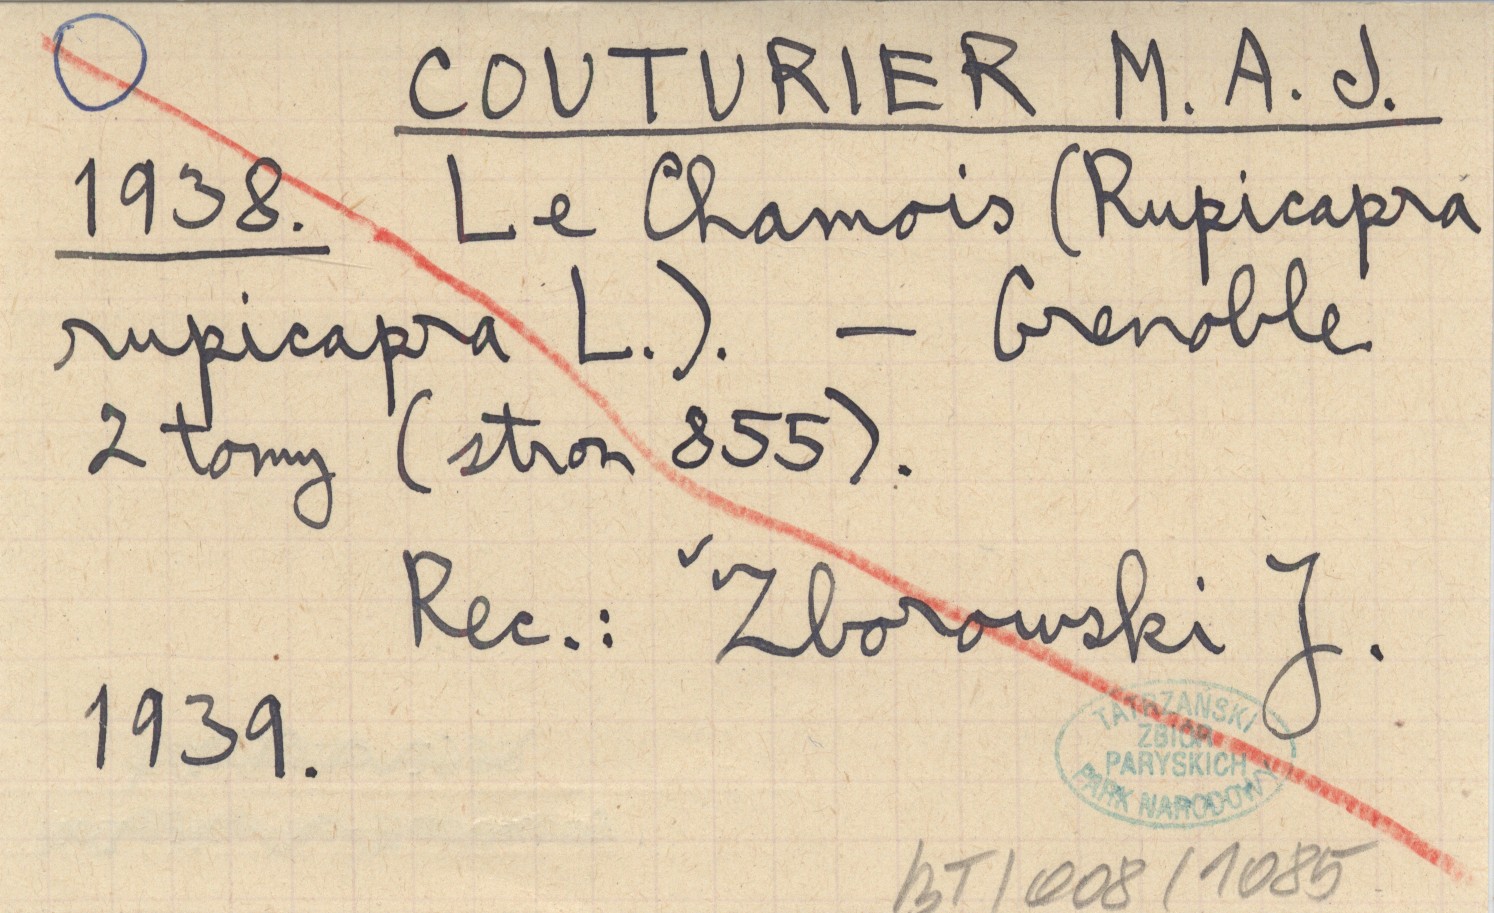 COUTURIER M. A. J.
1938. Le Chamois (Rupicapra
rupicapra L.). — Grenoble
2 tomy (stron 855).
Rec.: Zborowski J.
1939.
TATRZAŃSKI
ZBIÓR
PARYSKICH
PARK NARODOWY
BT/008/1085